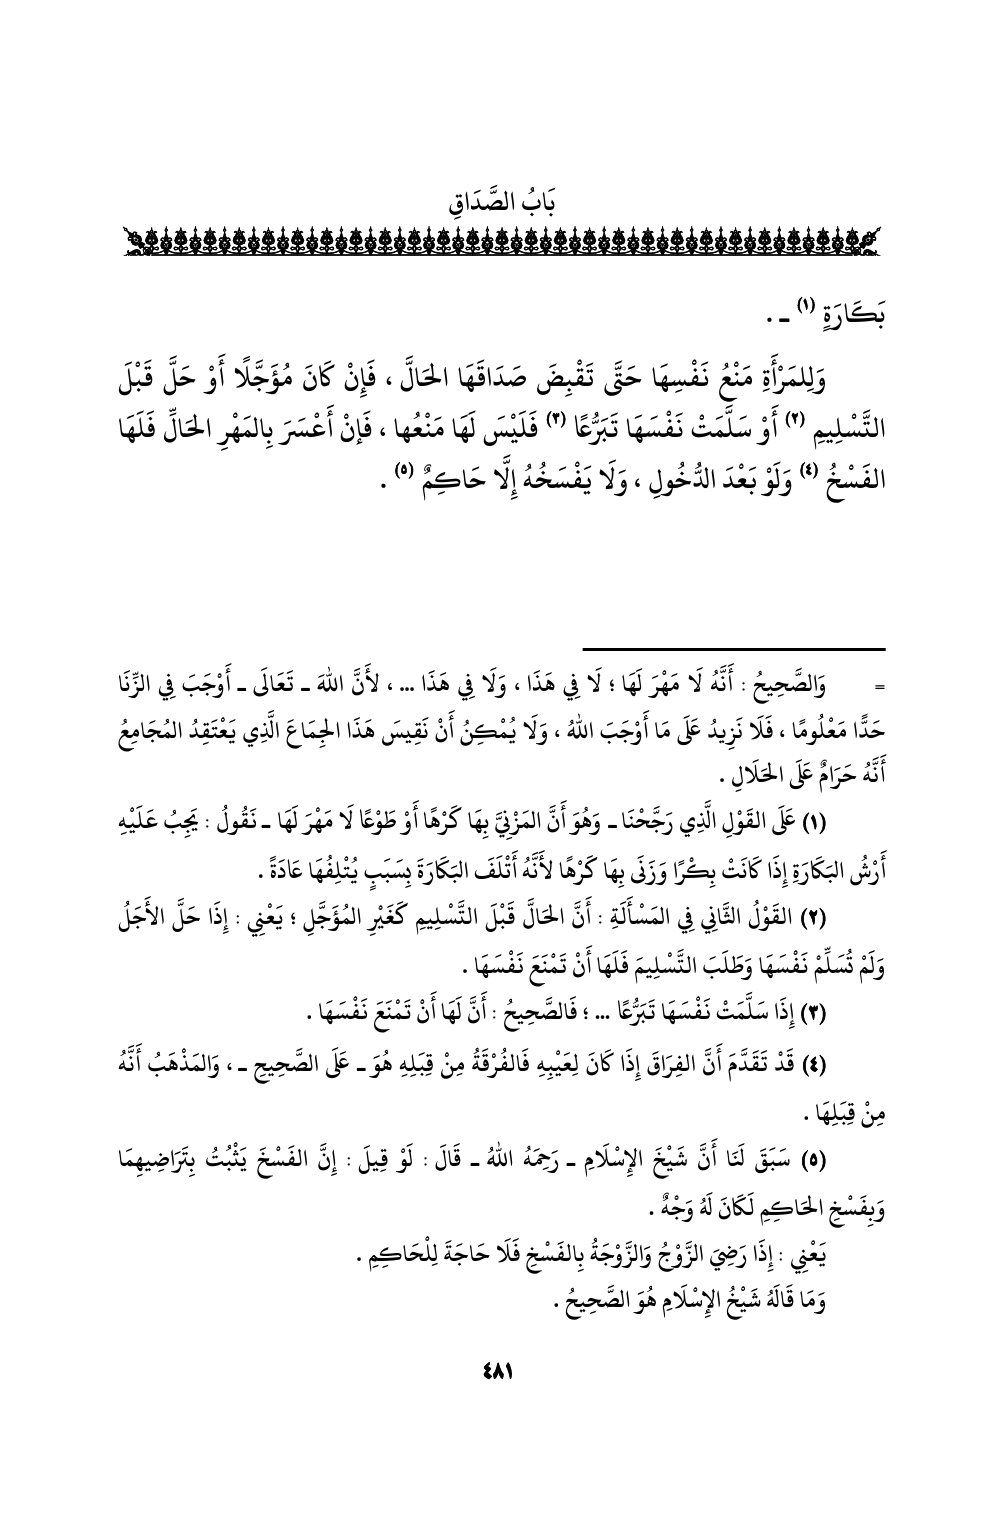 بَابُ الصَّدَاقِ
بَكَارَةٍ (١) ـ .
وَلِلمَرْأَةِ مَنْعُ نَفْسِهَا حَتَّى تَقْبِضَ صَدَاقَهَا الحَالَّ ، فَإِنْ كَانَ مُؤَجَّلًا أَوْ حَلَّ قَبْلَ
التَّسْلِيمِ (٢) أَوْ سَلَّمَتْ نَفْسَهَا تَبَرُّعًا (٣) فَلَيْسَ لَهَا مَنْعُها ، فَإنْ أَعْسَرَ بِالمَهْرِ الحَالِّ فَلَهَا
الفَسْخُ (٤) وَلَوْ بَعْدَ الدُّخُولِ ، وَلَا يَفْسَخُهُ إِلَّا حَاكِمٌ (٥) .
= وَالصَّحِيحُ : أَنَّهُ لَا مَهْرَ لَهَا ؛ لَا فِي هَذَا ، وَلَا فِي هَذَا ... ، لأَنَّ اللهَ ـ تَعَالَى ـ أَوْجَبَ فِي الزِّنَا
حَدًّا مَعْلُومًا ، فَلَا نَزِيدُ عَلَى مَا أَوْجَبَ اللهُ ، وَلَا يُمْكِنُ أَنْ نَقِيسَ هَذَا الجِمَاعَ الَّذِي يَعْتَقِدُ المُجَامِعُ
أَنَّهُ حَرَامٌ عَلَى الحَلَالِ .
(١) عَلَى القَوْلِ الَّذِي رَجَّحْنَا ـ وَهُوَ أَنَّ المَزْنِيَّ بِهَا كَرْهًا أَوْ طَوْعًا لَا مَهْرَ لَهَا ـ نَقُولُ : يَجِبُ عَلَيْهِ
أَرْشُ البَكَارَةِ إِذَا كَانَتْ بِكْرًا وَزَنَى بِهَا كَرْهًا لأَنَّهُ أَتْلَفَ البَكَارَةَ بِسَبَبٍ يُتْلِفُهَا عَادَةً .
(٢) القَوْلُ الثَّانِي فِي المَسْأَلَةِ : أَنَّ الحَالَّ قَبْلَ التَّسْلِيمِ كَغَيْرِ المُؤَجَّلِ ؛ يَعْنِي : إِذَا حَلَّ الأَجَلُ
وَلَمْ تُسَلِّمْ نَفْسَهَا وَطَلَبَ التَّسْلِيمَ فَلَهَا أَنْ تَمْنَعَ نَفْسَهَا .
(٣) إِذَا سَلَّمَتْ نَفْسَهَا تَبَرُّعًا ... ؛ فَالصَّحِيحُ : أَنَّ لَهَا أَنْ تَمْنَعَ نَفْسَهَا .
(٤) قَدْ تَقَدَّمَ أَنَّ الفِرَاقَ إِذَا كَانَ لِعَيْبِهِ فَالفُرْقَةُ مِنْ قِبَلِهِ هُوَ ـ عَلَى الصَّحِيحِ ـ ، وَالمَذْهَبُ أَنَّهُ
مِنْ قِبَلِهَا .
(٥) سَبَقَ لَنَا أَنَّ شَيْخَ الإِسْلَامِ ـ رَحِمَهُ اللهُ ـ قَالَ : لَوْ قِيلَ : إِنَّ الفَسْخَ يَثْبُتُ بِتَرَاضِيهِمَا
وَبِفَسْخِ الحَاكِمِ لَكَانَ لَهُ وَجْهٌ .
يَعْنِي : إِذَا رَضِيَ الزَّوْجُ وَالزَّوْجَةُ بِالفَسْخِ فَلَا حَاجَةَ لِلْحَاكِمِ .
وَمَا قَالَهُ شَيْخُ الإِسْلَامِ هُوَ الصَّحِيحُ .
٤٨١